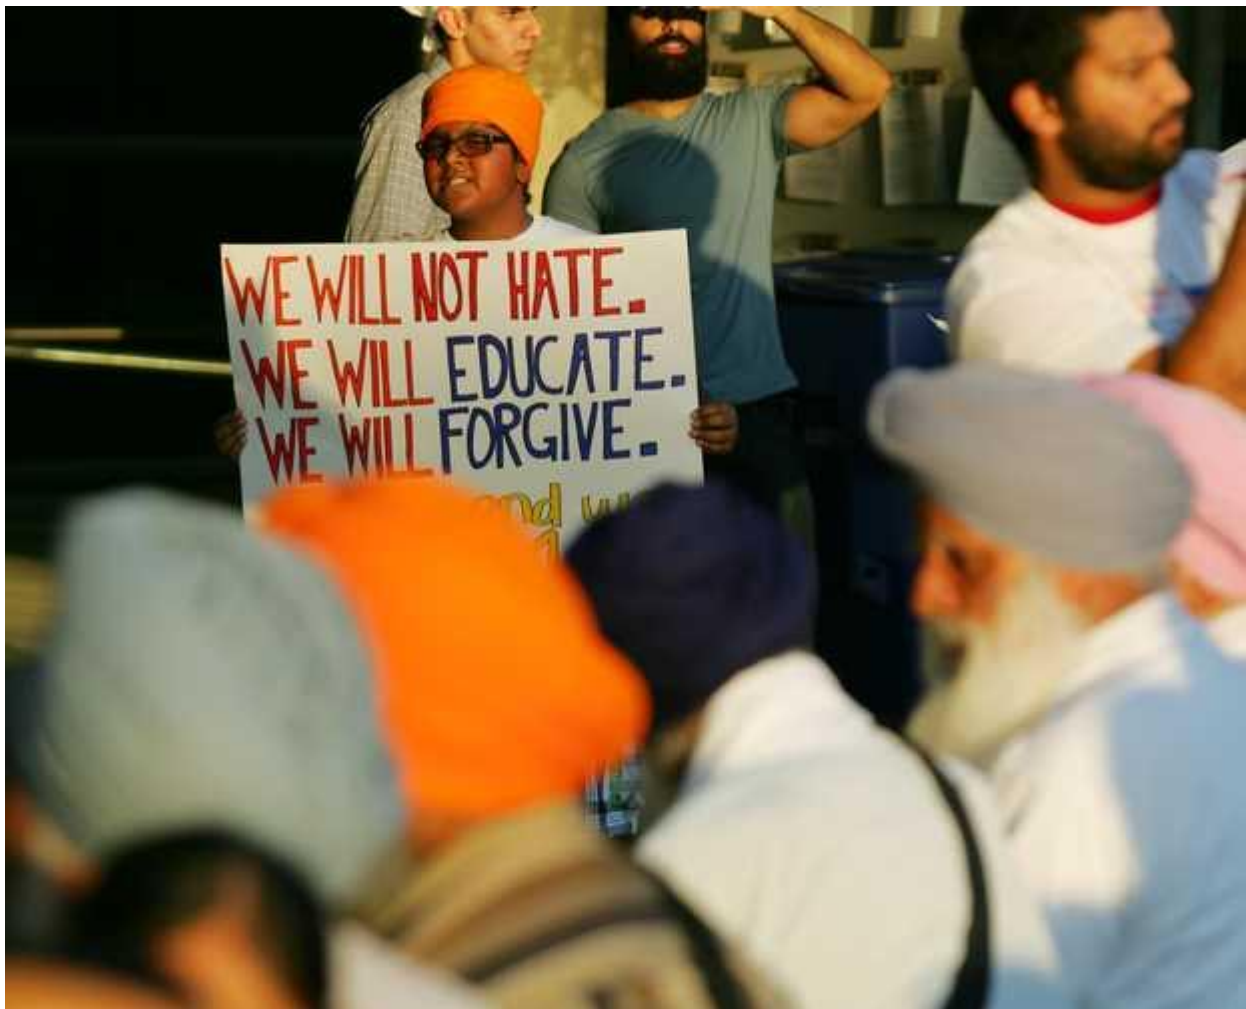 WE WILL NOT HATE.
WE WILL EDUCATE.
WE WILL FORGIVE.
and